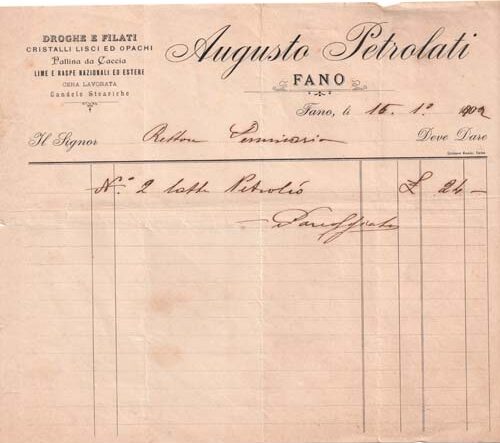 DROGHE E FILATI
CRISTALLI LISCI ED OPACHI
Pallina da Caccia
LIME E RASPE NAZIONALI ED ESTERE
CERA LAVORATA
Candele Steariche
Augusto Petrolati
FANO
Fano, li 15. 1º 1902
Il Signor Rettore Seminario Deve Dare
Nº 2 latte Petrolio £ 24 —